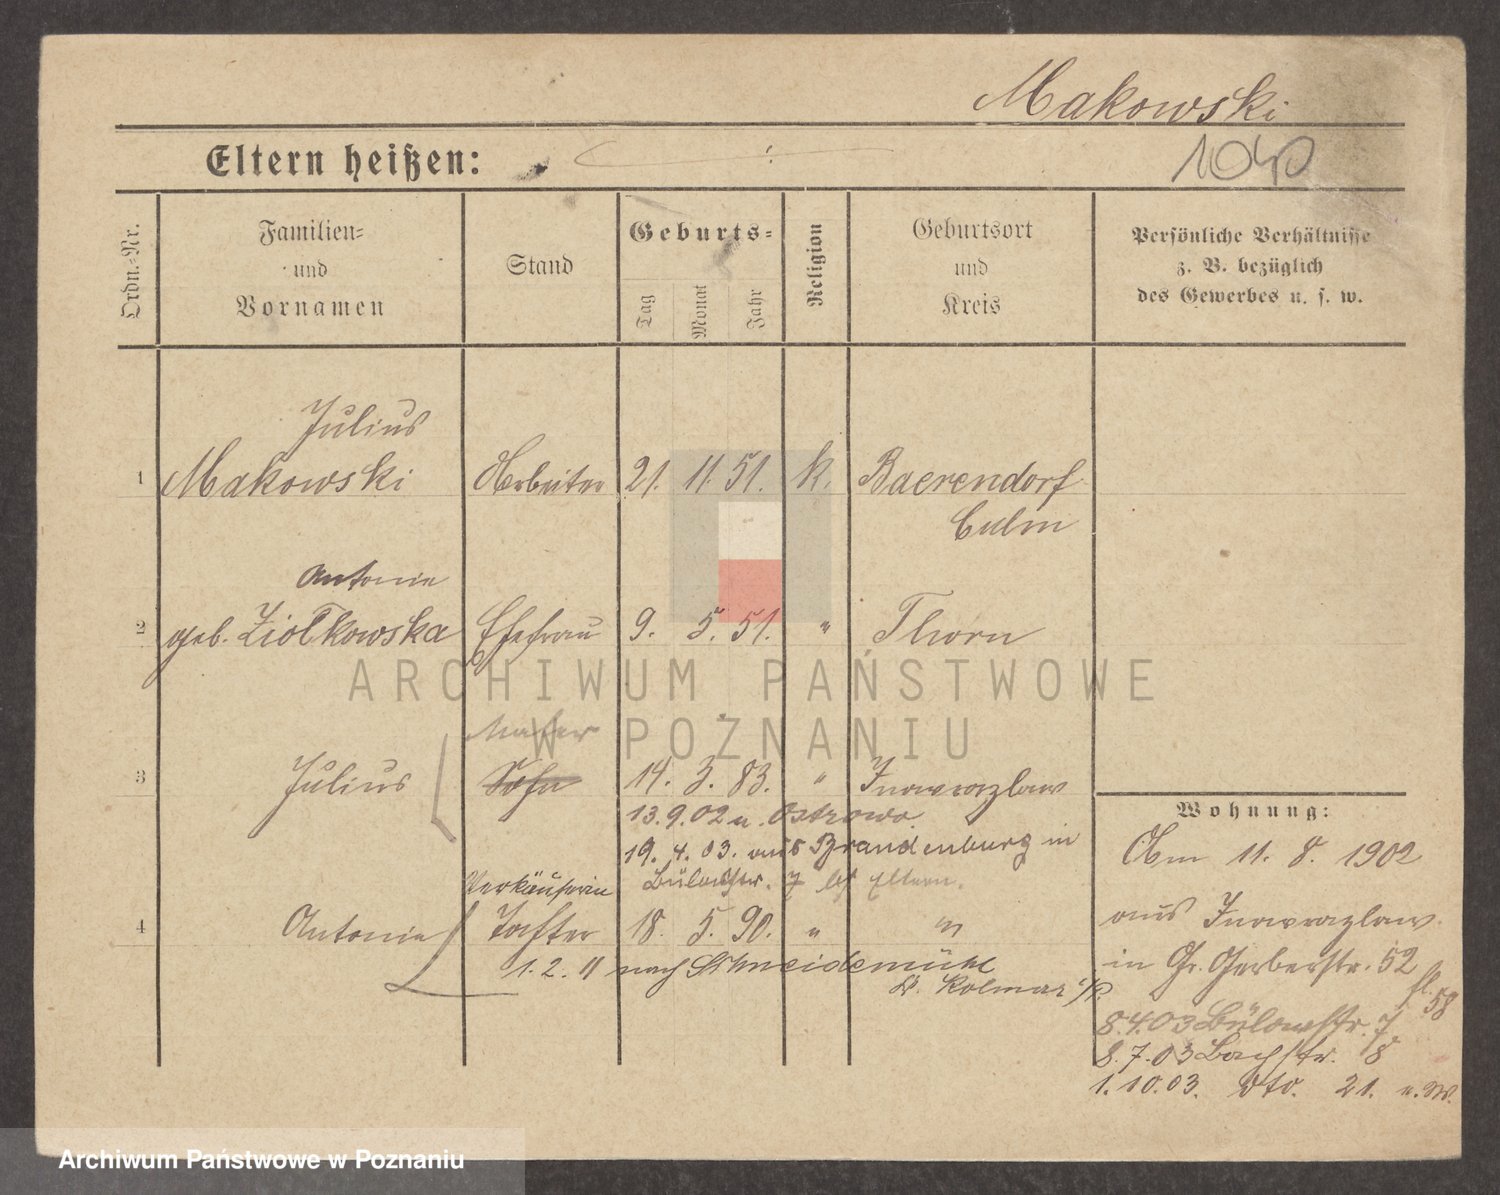 Makowski
Eltern heißen:
Ordn.-Nr.
Familien-
und
Vornamen
Stand
Geburts-
Tag
Monat
Jahr
Religion
Geburtsort
und
Kreis
Persönliche Verhältnisse
z. B. bezüglich
des Gewerbes u. s. w.
Julius
1 Makowski Arbeiter 21. 11. 51. k. Baerendorf
Culm
Antonie
2 geb. Ziołkowska Ehefrau 9. 5. 51. " Thorn
ARCHIWUM PAŃSTWOWE
W POZNANIU
Maler
3 Julius Sohn 14. 3. 83. " Inowrazlaw
13.9.02 n. Ostrowo.
19. 4. 03. aus Brandenburg in
Bülowstr. 7 bei Eltern.
Verkäuferin
4 Antonie Tochter 18. 5. 90. " "
1. 2. 11 nach Schneidemühl
Kr. Kolmar i/P.
Wohnung:
Am 11. 8. 1902
aus Inowrazlaw
in Gr. Gerberstr. 52
58
8.4.03 Bülowstr. 7
8.7.03 Bachstr. 8
1.10.03. dto. 21. n.W.
Archiwum Państwowe w Poznaniu